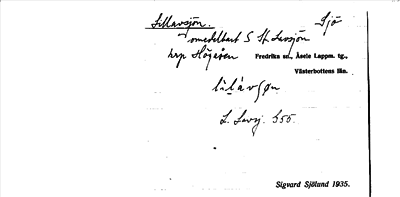 Lillavsjön. Sjö
omedelbart S St. Lavsjön
Fredrika sn., Åsele Lappm. tg.,
Västerbottens län.
L. Lavsj. 555.
Sigvard Sjölund 1935.